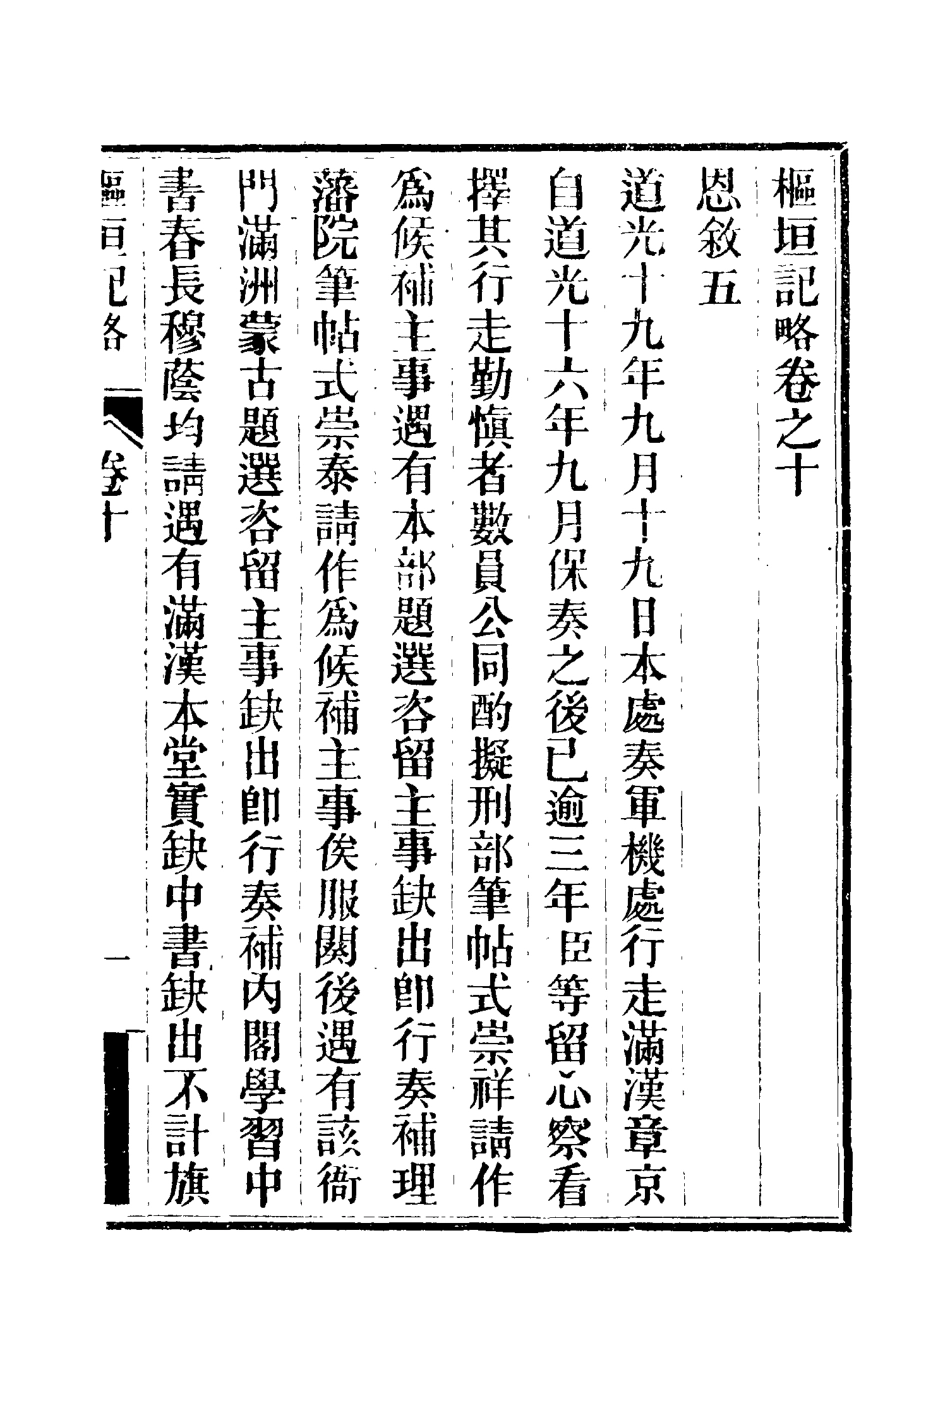 樞垣記略卷之十
恩敘五
道光十九年九月十九日本處奏軍機處行走滿漢章京
自道光十六年九月保奏之後已逾三年臣等留心察看
擇其行走勤慎者數員公同酌擬刑部筆帖式崇祥請作
爲候補主事遇有本部題選咨留主事缺出卽行奏補理
藩院筆帖式崇泰請作爲候補主事俟服闋後遇有該衙
門滿洲蒙古題選咨留主事缺出卽行奏補內閣學習中
書春長穆蔭均請遇有滿漢本堂實缺中書缺出不計旗
樞垣記略 卷十 一